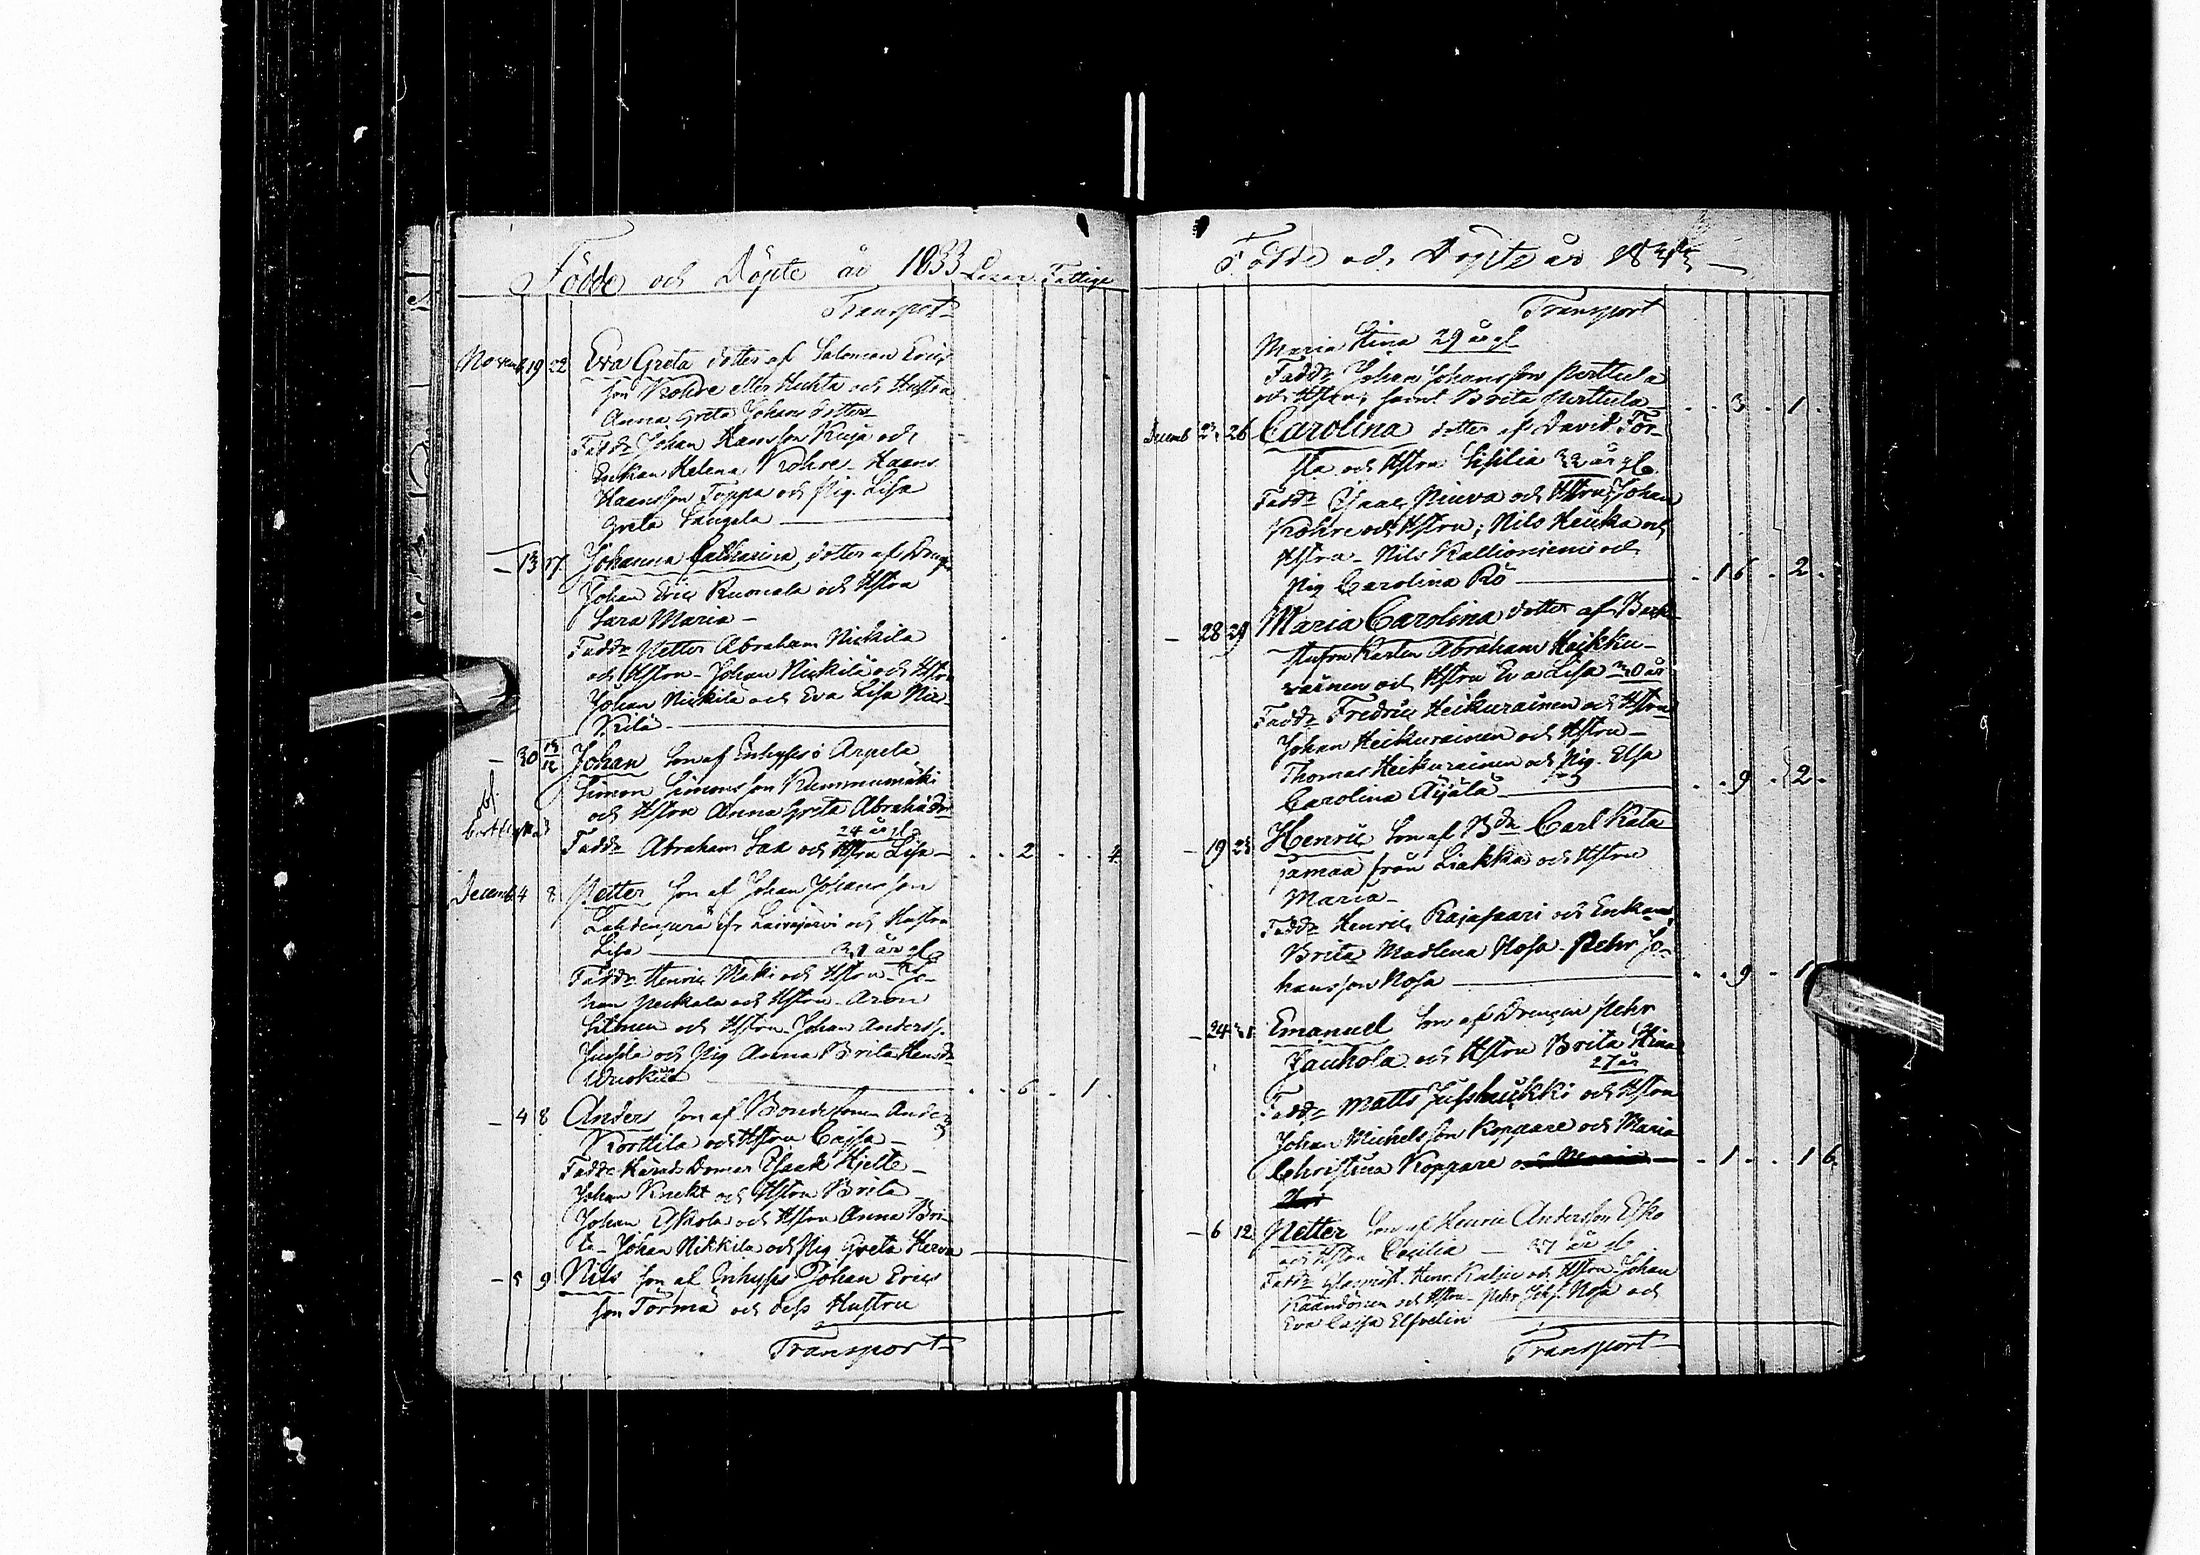 Födde och Döpte år 1833 Fattige
Transport
Novemb 19 22 Eva Greta dotter af Salomon Erics
son Rohre eller Huhta och Hustru
Anna Greta Johans dotter
Fadd: Johan Hansson Kuja och
Enkan Helena Rohre - Haans
Haansson Toppa och Pig. Lisa
Greta Laugala
- 13 17 Johanna Catharina, dotter af Dreng:
Johan Eric Ruonala och Hstru
Sara Maria -
Fadd: Petter Abraham Nickilä
och Hstru - Johan Nickilä och Hstru
Johan Nickilä och Eva Lisa Nic-
kilä
- 30 13/12 Johan Son af Inhyses i Arpela
Simon Simonsson Kummumäki
och Hstru Anna Greta Abrahadr
24 år gl
Fadd: Abraham Lax och Hstru Lisa - 2 4
Decemb 4 8 Petter Son af Johan Johansson
och Hustru
Lisa 31 år gl
Fadd: Henric Mäki och Hstru - Jo-
han Peckala och Hstru - Aron
och Hstru - Johan Anderss.
och Pig Anna Brita Hensdr
6 1
- 4 8 Anders Son af Bondesonen Anders
Korttila och Hstru Cajsa -
Fadd: Härads Domar Isaak Hjelte -
Johan Knekt och Hstru Brita
Johan Eskola och Hstru Anna Bri-
ta - Johan Nikkila och Pig Greta Herva
- 5 9 Nils son af Inhyses Johan Erics
son Törmä och dess Hustru
Transport
Födde och Döpte år 1833
Transport
Maria Stina 29 år gl
Fadd: Johan Johansson Perttula
och Hstru, samt Brita Perttula 3 1
Decemb 23 26 Carolina dotter af David Tör-
mä och Hstru Sisilia 32 år gl.
Fadd: Isaac Niuva och Hstru, Johan
Rohre och Hstru; Nils Heikka och
Hstru - Nils Kallioniemi och
Pig Carolina Rö 16 2
- 28 29 Maria Carolina dotter af Back-
stufu Karlen Abraham Heikku-
rainen och Hstru Eva Lisa 30 år
Fadd: Fredric Heikurainen och Hstru
Johan Heikurainen och Hstru -
Thomas Heikurainen och Pig. Elsa
Carolina Äijälä 9 2
- 19 25 Henric Son af Bdn Carl Rata
jamaa från Liakka och Hstru
Maria -
Fadd: Henric Rajasaari och Enkan
Brita Madlena Nosa - Pehr Jo-
hansson Nosa 9 1
- 24 31 Emanuel Son af Drengen Pehr
Jauhola och Hstru Brita Stina
27 år
Fadd: Matts och Hstru
Johan Michelsson Koppare och Maria
Christina Koppare 1 1 6
- 6 12 Petter Son af Henric Andersson Esko
och Hstru Cecilia - 37 år gl
Fadd: Henr. Kalju och Hstru - Johan
Käändönen och Hstru - Pehr Johs. Nosa och
Eva Cajsa Elfvelin
Transport